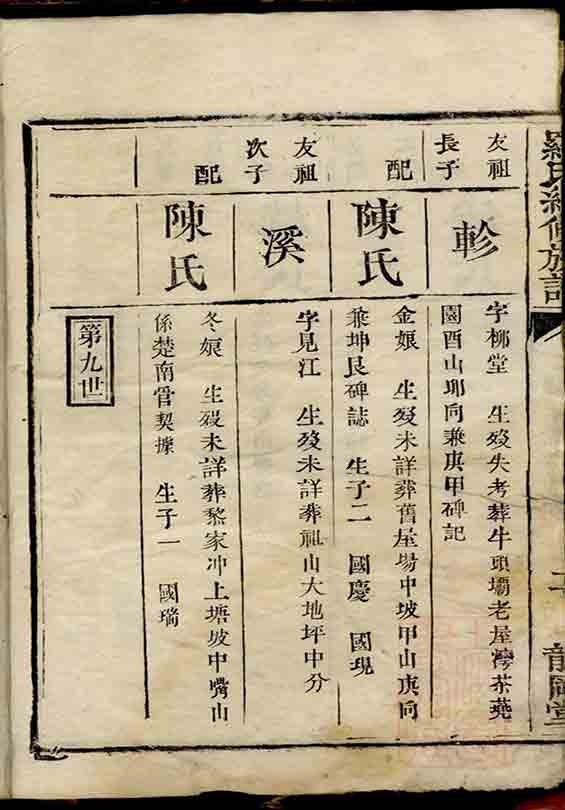 羅氏續修族譜
二
友祖
長子
軫
字柳堂 生歿失考葬牛頭壩老屋灣茶蕘
園酉山卯向兼庚甲碑記
配
陳氏
金娘 生歿未詳葬舊屋場中坡甲山庚向
兼坤艮碑誌 生子二 國慶 國現
友祖
次子
溪
字見江 生歿未詳葬祖山大地坪中分
配
陳氏
冬娘 生歿未詳葬黎家冲上塘坡中嘴山
係楚南管契據 生子一 國瑞
第九世